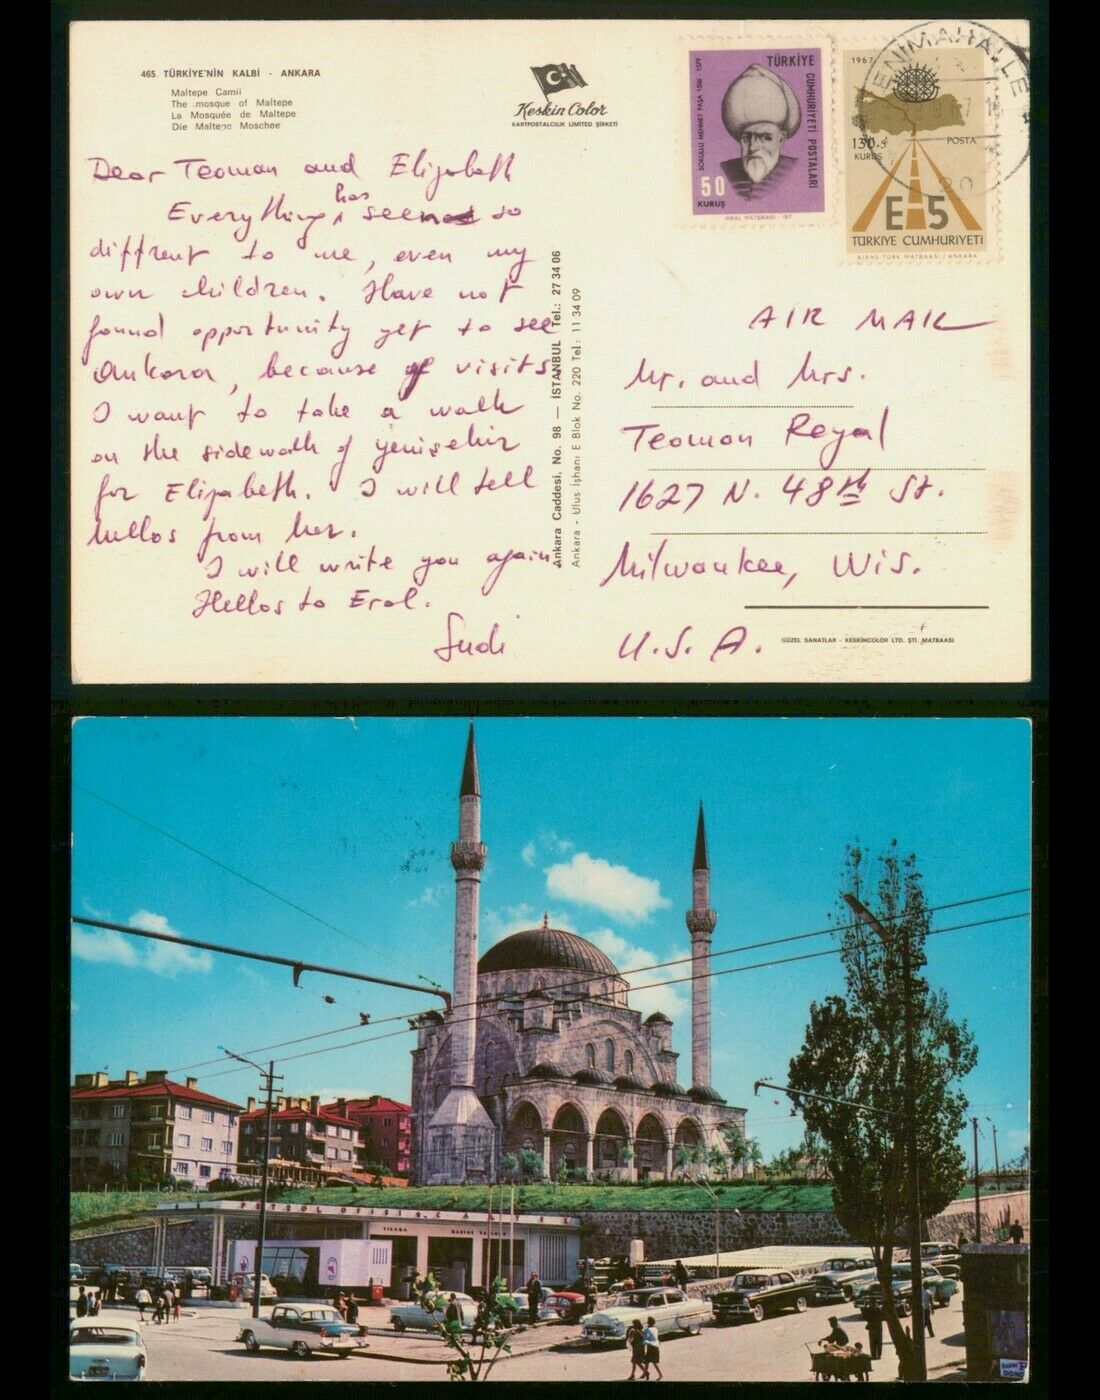 465 TÜRKİYE'NİN KALBİ - ANKARA
Maltepe Camii
The mosque of Maltepe
La Mosquée de Maltepe
Die Maltepe Moschee
Keskin Color
KARTPOSTALCILIK LIMITED ŞİRKETİ
TÜRKİYE
CUMHURİYETİ POSTALARI
SOKULLU MEHMET PAŞA 1506 - 1579
50
KURUŞ
1967
130+5
KURUŞ
POSTA
E-5
TÜRKİYE CUMHURİYETİ
AJANS-TÜRK MATBAASI / ANKARA
YENİMAHALLE
Dear Teoman and Elizabeth
Everything has seemed so
diffrent to me, even my
own children. Have not
found opportunity yet to see
Ankara, because of visits
I want to take a walk
on the sidewalk of Yenişehir
for Elizabeth. I will tell
hellos from her.
I will write you again
Hellos to Erol.
Sudi
Ankara Caddesi, No. 98 — İSTANBUL Tel.: 27 34 06
Ankara - Ulus İşhanı E Blok No. 220 Tel.: 11 34 09
AIR MAIL
Mr. and Mrs.
Teoman Reyal
1627 N. 48th St.
Milwaukee, Wis.
U.S.A.
GÜZEL SANATLAR - KESKİNCOLOR LTD. ŞTİ. MATBAASI
PETROL OFİSİ